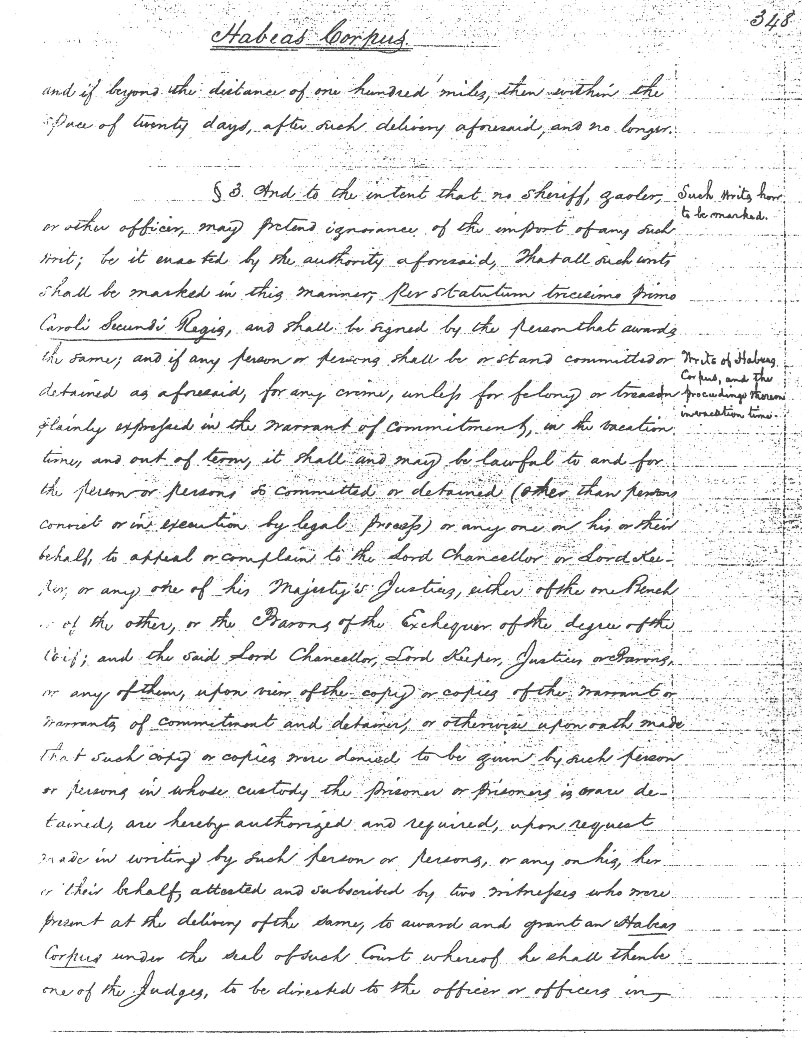 348
Habeas Corpus.
and if beyond the distance of one hundred miles, then within the
space of twenty days, after such delivery aforesaid, and no longer.
§ 3. And to the intent that no sheriff, gaoler,
or other officer, may pretend ignorance of the import of any such
writ; be it enacted by the authority aforesaid, That all such writs
shall be marked in this manner, per statutum tricesimo primo
Caroli Secundi Regis, and shall be signed by the person that awards
the same; and if any person or persons shall be or stand committed or
detained as aforesaid, for any crime, unless for felony or treason
plainly expressed in the warrant of commitment, in the vacation
time, and out of term, it shall and may be lawful to and for
the person or persons so committed or detained (other than persons
convict or in execution by legal process) or any one on his or their
behalf, to appeal or complain to the Lord Chancellor or Lord Kee-
per, or any one of his Majesty's Justices, either of the one Bench
or of the other, or the Barons of the Exchequer of the degree of the
Coif; and the said Lord Chancellor, Lord Keeper, Justices or Barons,
or any of them, upon view of the copy or copies of the warrant or
warrants of commitment and detainer, or otherwise upon oath made
that such copy or copies were denied to be given by such person
or persons in whose custody the prisoner or prisoners is or are de-
tained, are hereby authorized and required, upon request
made in writing by such person or persons, or any on his, her
or their behalf, attested and subscribed by two witnesses who were
present at the delivery of the same, to award and grant an Habeas
Corpus under the seal of such Court whereof he shall then be
one of the Judges, to be directed to the officer or officers in
Such writs how
to be marked.
Writs of Habeas
Corpus, and the
proceedings thereon
in vacation time.